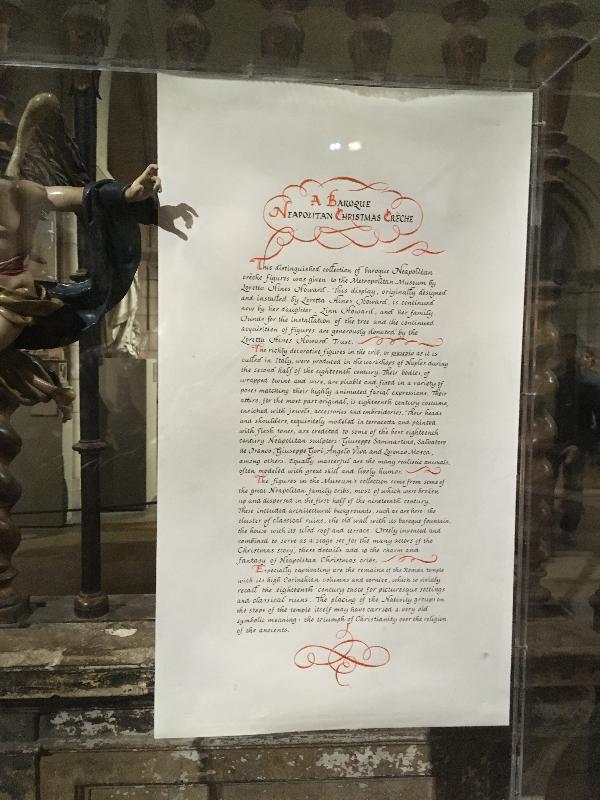 A BAROQUE
NEAPOLITAN CHRISTMAS CRÈCHE
This distinguished collection of baroque Neapolitan
crèche figures was given to the Metropolitan Museum by
Loretta Hines Howard. This display, originally designed
and installed by Loretta Hines Howard, is continued
now by her daughter, Linn Howard, and her family.
Funds for the installation of the tree and the continued
acquisition of figures are generously donated by the
Loretta Hines Howard Trust.
The richly decorative figures in the crib, or presepio as it is
called in Italy, were produced in the workshops of Naples during
the second half of the eighteenth century. Their bodies, of
wrapped twine and wire, are pliable and fixed in a variety of
poses matching their highly animated facial expressions. Their
attire, for the most part original, is eighteenth century costume,
enriched with jewels, accessories and embroideries. Their heads
and shoulders, exquisitely modeled in terracotta and painted
with flesh tones, are credited to some of the best eighteenth
century Neapolitan sculptors: Giuseppe Sammartino, Salvatore
de Franco, Giuseppe Gori, Angelo Viva and Lorenzo Mosca,
among others. Equally masterful are the many realistic animals,
often modeled with great skill and lively humor.
The figures in the Museum's collection come from some of
the great Neapolitan family cribs, most of which were broken
up and dispersed in the first half of the nineteenth century.
These included architectural backgrounds, such as are here: the
cluster of classical ruins, the old wall with its baroque fountain,
the house with its tiled roof and terrace. Freely invented and
combined to serve as a stage set for the many actors of the
Christmas story, these details add to the charm and
fantasy of Neapolitan Christmas cribs.
Especially captivating are the remains of the Roman temple
with its high Corinthian columns and cornice, which so vividly
recall the eighteenth century taste for picturesque settings
and classical ruins. The placing of the Nativity groups on
the steps of the temple itself may have carried a very old
symbolic meaning: the triumph of Christianity over the religion
of the ancients.